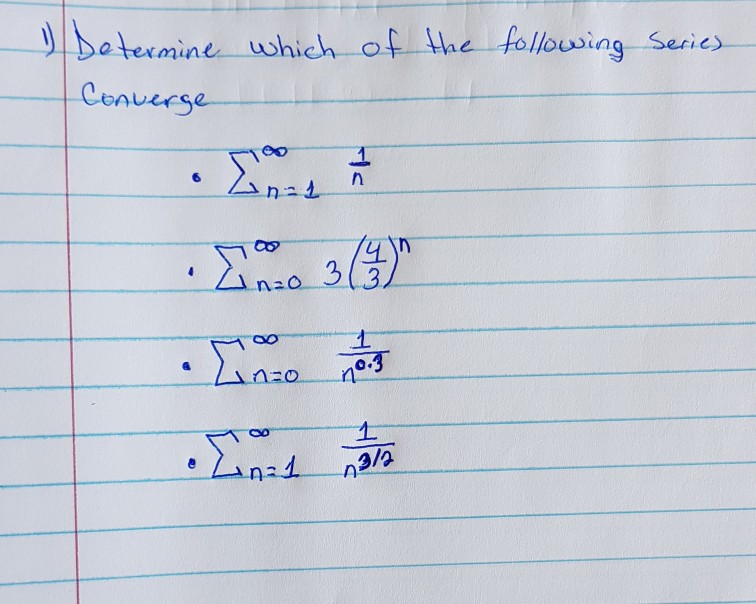 1) Determine which of the following series
Converge
• ∑_{n=1}^{∞} 1/n
• ∑_{n=0}^{∞} 3(4/3)^n
• ∑_{n=0}^{∞} 1/n^{0.3}
• ∑_{n=1}^{∞} 1/n^{3/2}